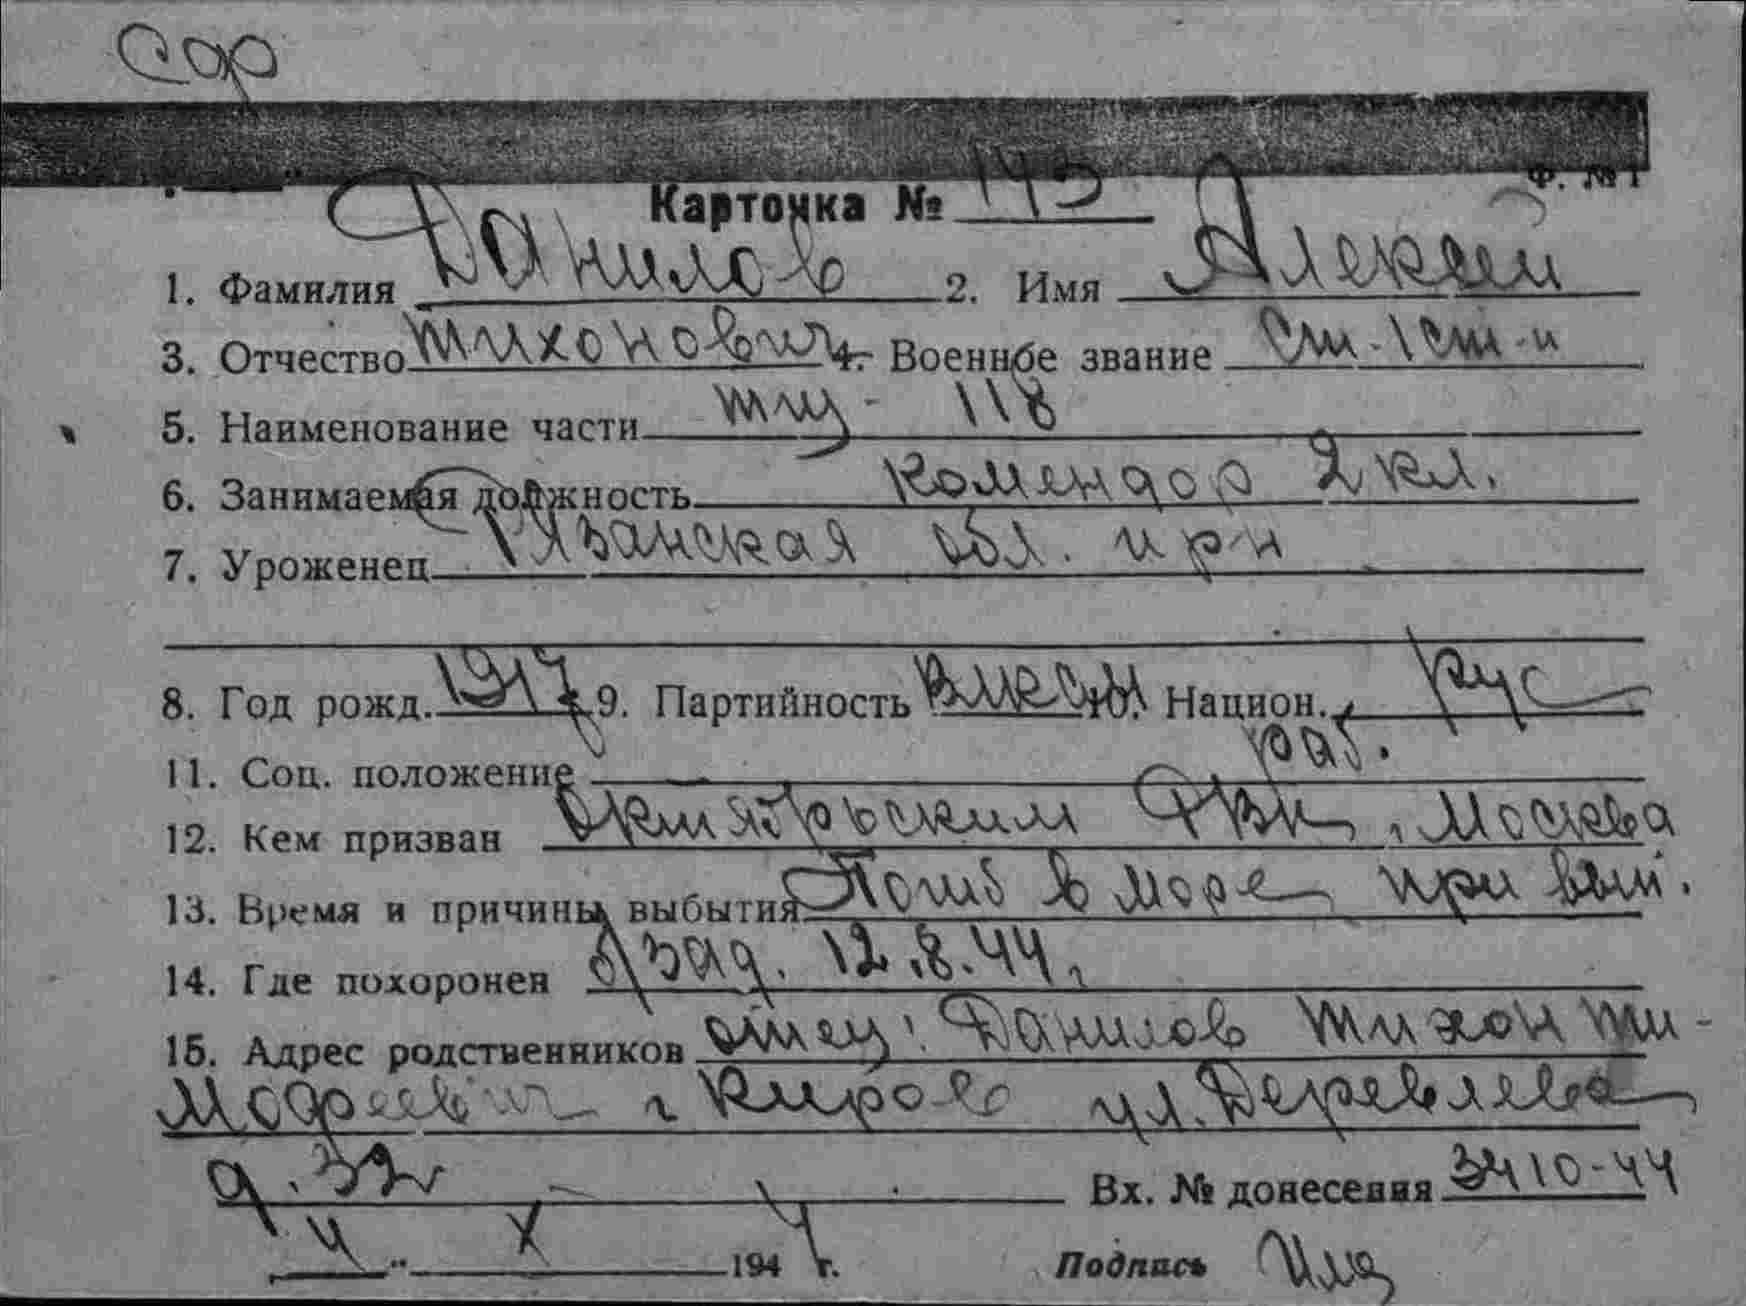 Ф. № 1
Карточка № 145
1. Фамилия Данилов 2. Имя Алексей
3. Отчество Тихонович 4. Военное звание Ст. 1 ст-и
5. Наименование части тщ - 118
6. Занимаемая должность Комендор 2 кл.
7. Уроженец Рязанская обл. и р-н
8. Год рожд. 1917 9. Партийность ВЛКСМ 10. Национ. рус
11. Соц. положение раб.
12. Кем призван Октябрьским РВК, г. Москва
13. Время и причины выбытия Погиб в море при вып.
14. Где похоронен б/зад. 12.8.44 г
15. Адрес родственников отец: Данилов Тихон Ти-
мофеевич г Киров ул. Деревлева
д. 32
Вх. № донесения 3410-44
4 " X 1944 г. Подпись